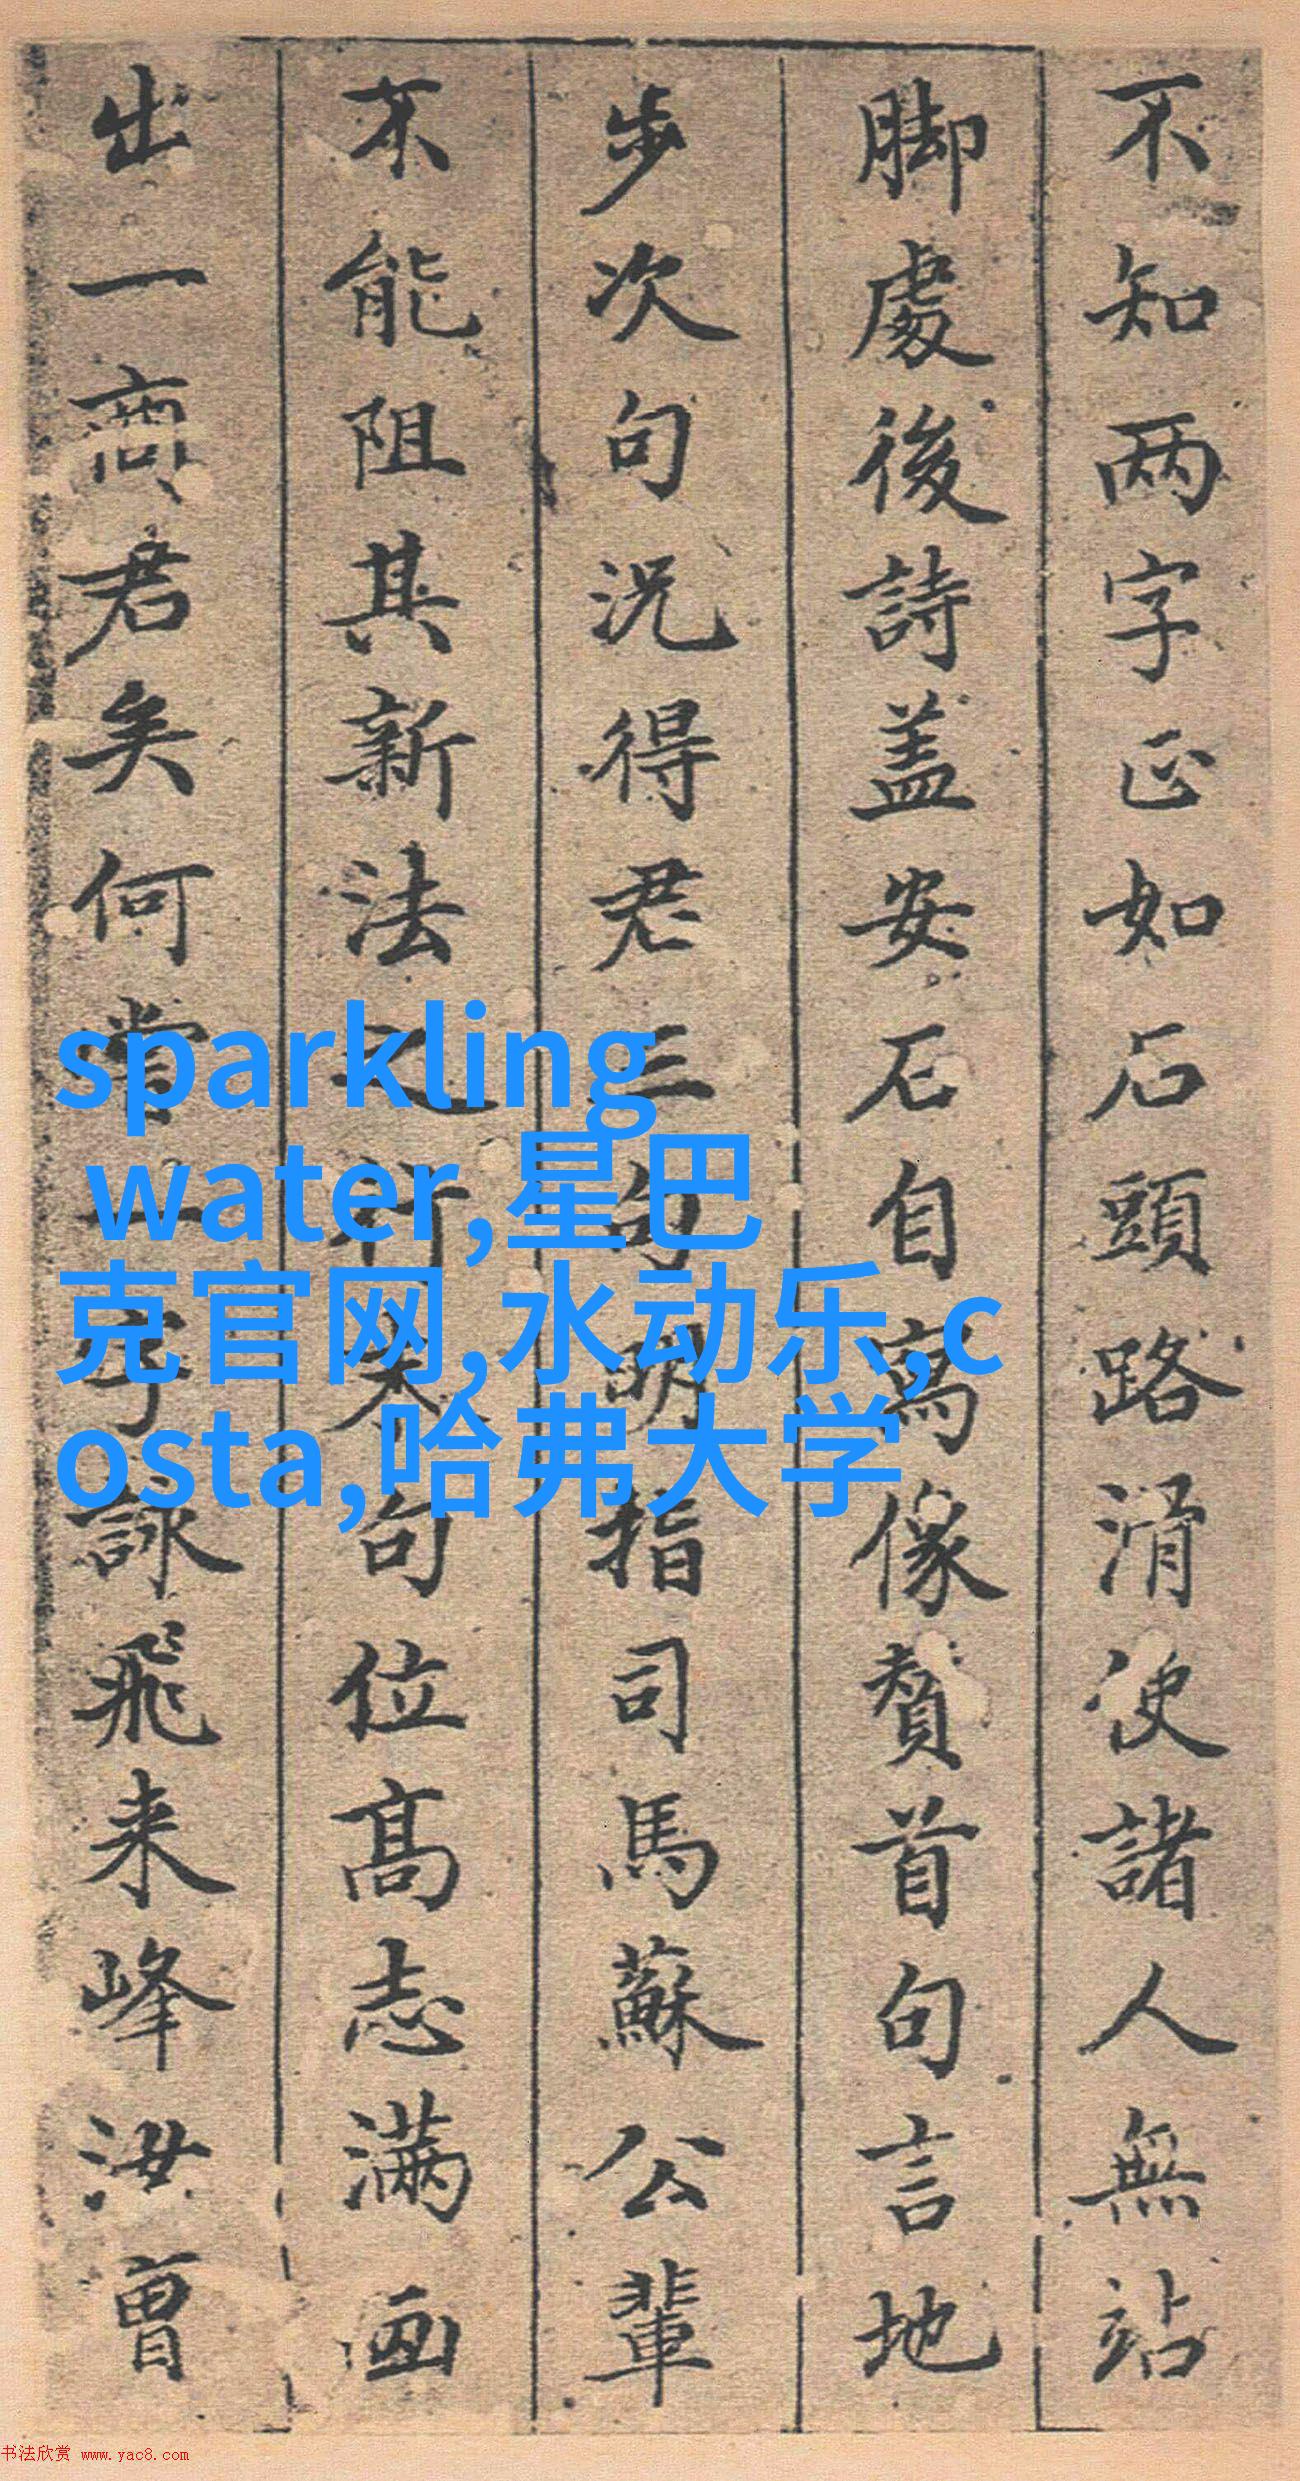 不知两字正如石頭路滑使諸人無站
脚處後詩盖安石自寫像賛首句言地
步次句況得君三句明指司馬蘇公輩
不能阻其新法之行末句位高志满画
出一商君矣何嘗一字詠飛来峰汝曾
sparkling
water,星巴
克官网,水动乐,c
osta,哈弗大学
书法欣赏 www.yac8.com